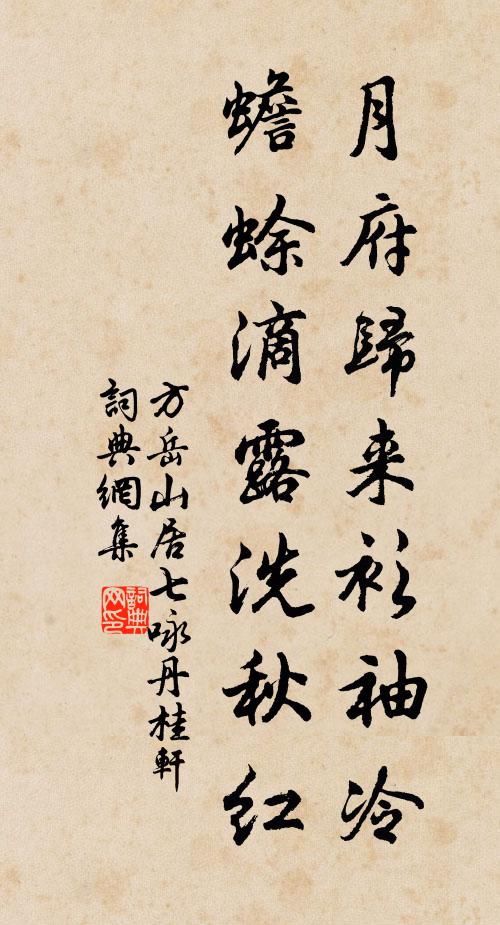 月府歸来衫袖冷
蟾蜍滴露洗秋红
方岳山居七咏丹桂軒
詞典網集
詞典
网印